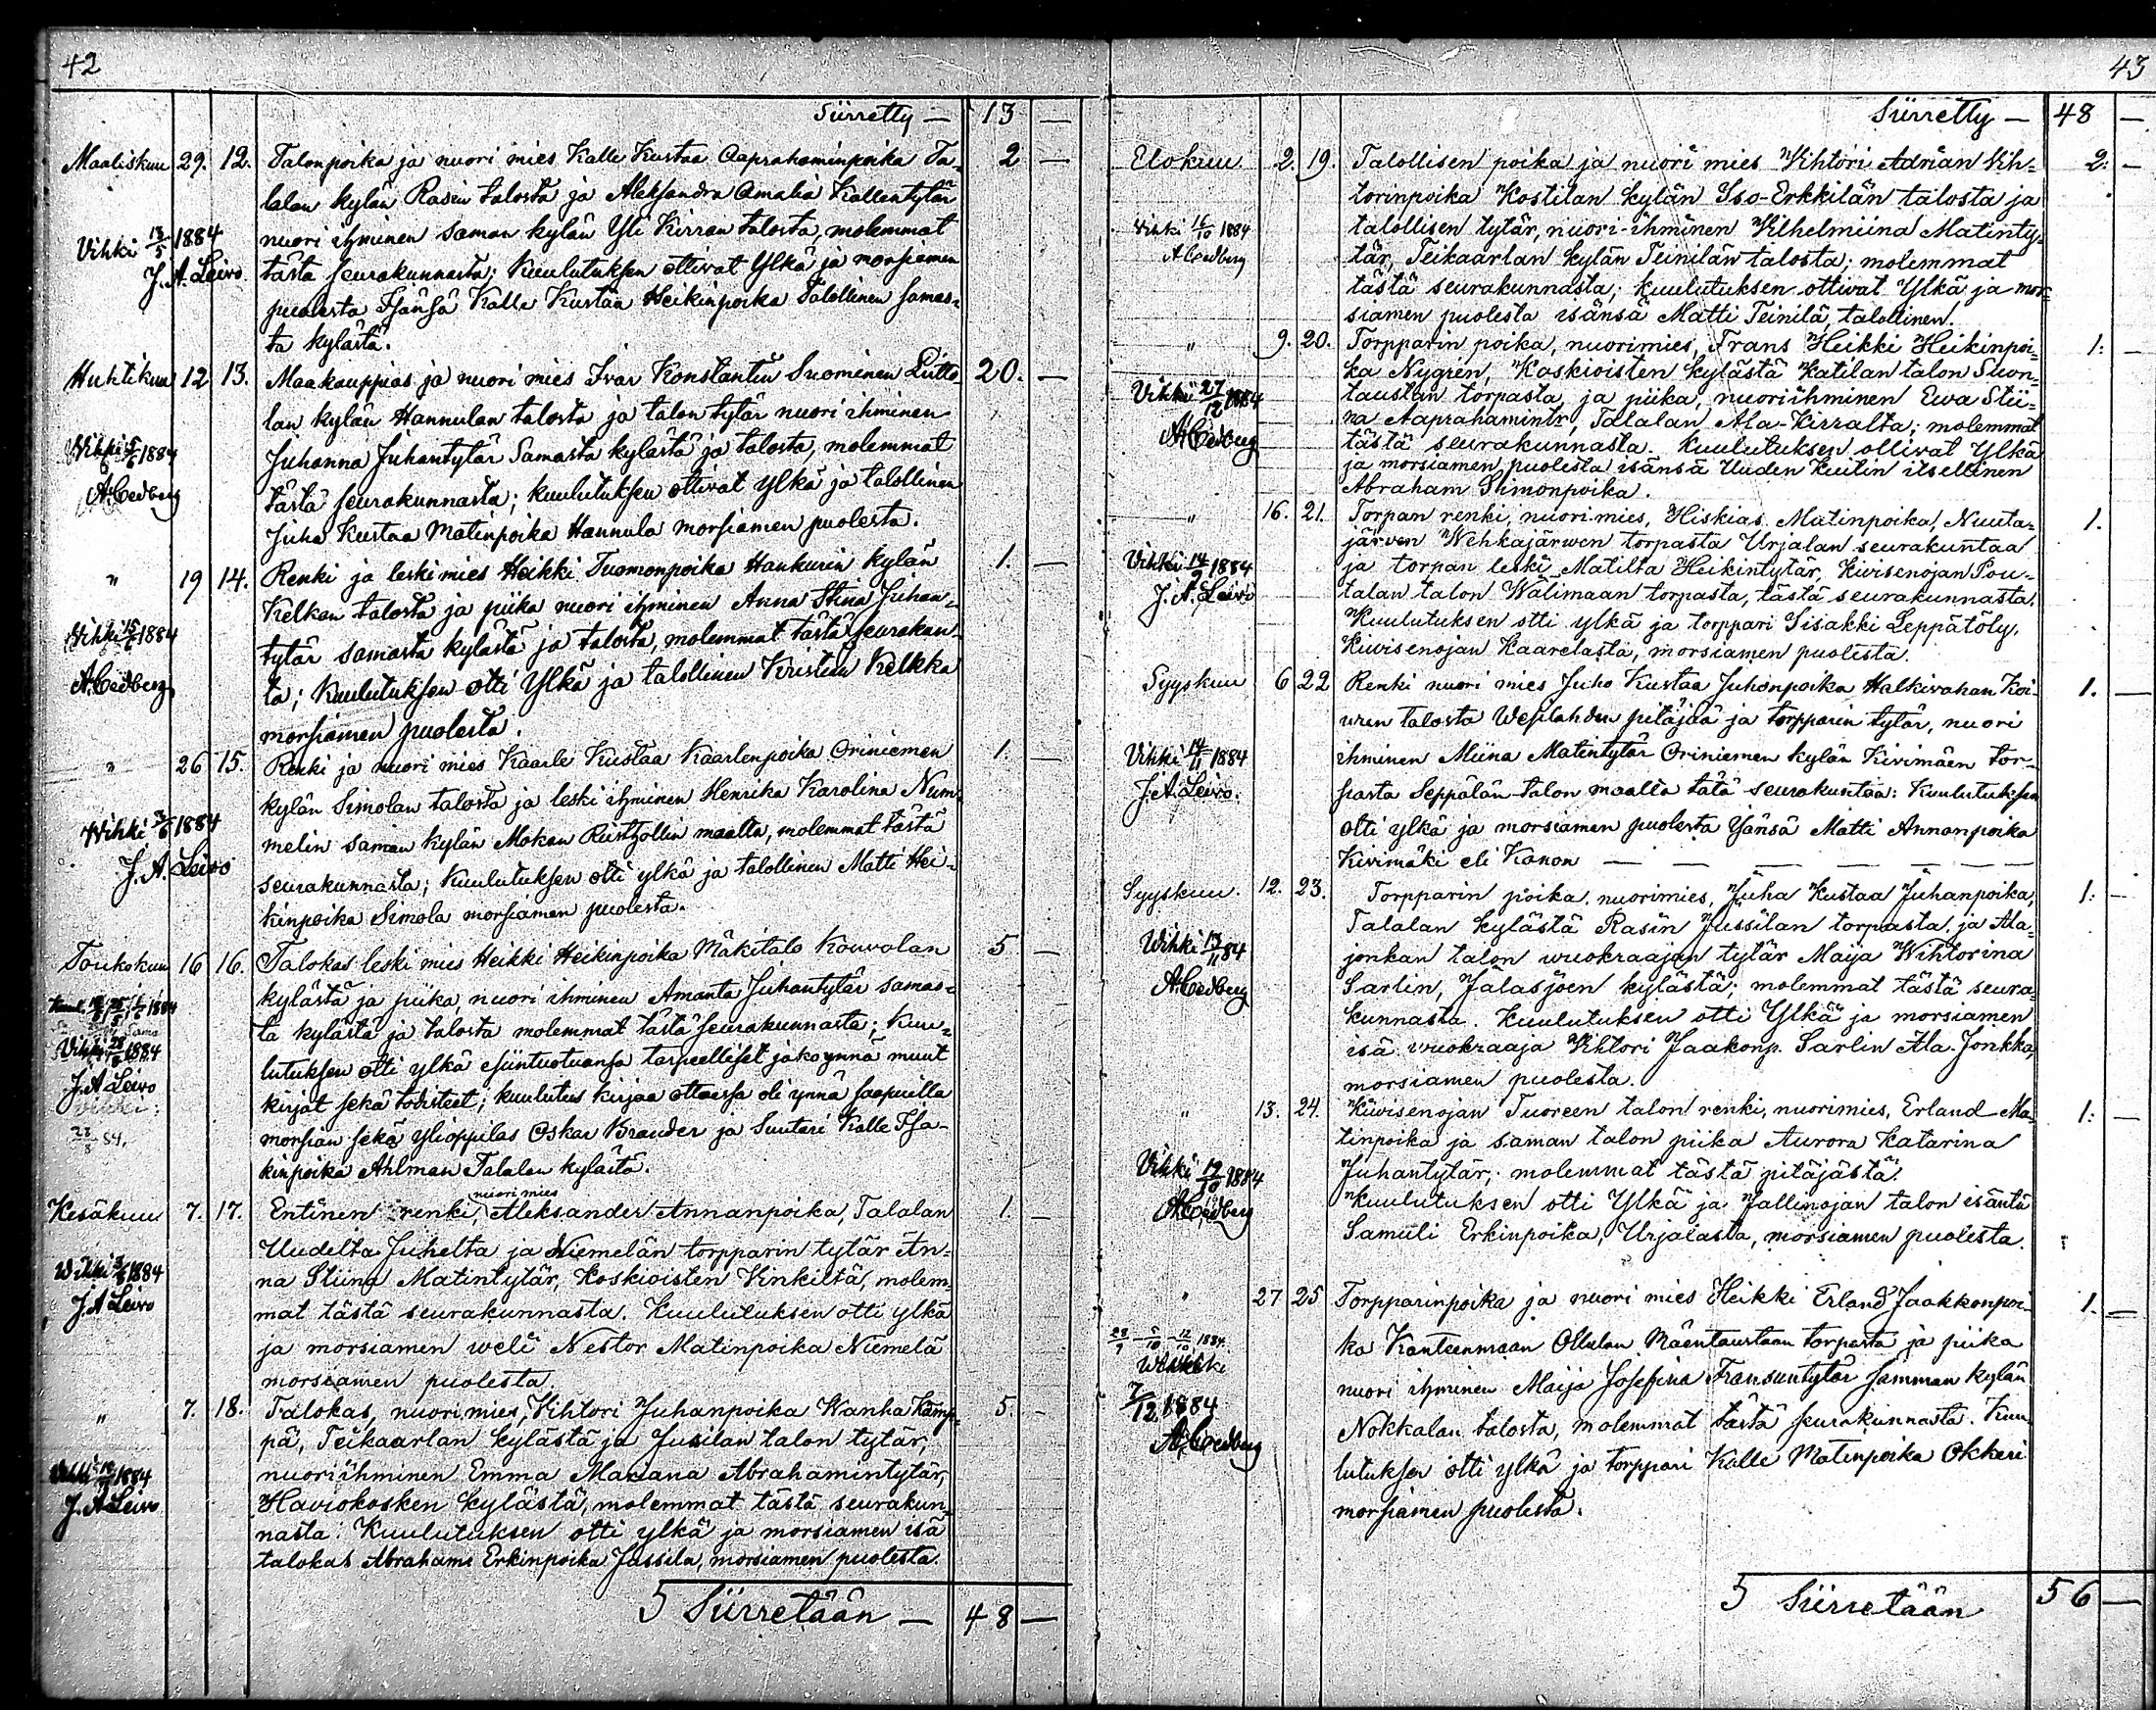 42
Siirretty — 13 —
Maaliskuu 29. 12. Talonpoika ja nuori mies Kalle Kustaa Aaprahaminpoika Ta- 2 —
lalan kylän Rasin talosta ja Aleksandra Amalia Kallentytär
Vihki 18/5 1884 nuori ihminen saman kylän Yli Kirran talosta, molemmat
J. A. Leivo tästä seurakunnasta; Kuulutuksen ottivat Ylkä ja morsiamen
puolesta Isänsä Kalle Kustaa Heikinpoika Talollinen samas-
ta kylästä.
Huhtikuu 12 13. Maakauppias ja nuori mies Ivar Konstantin Suominen 20. —
lan kylän Hannulan talosta ja talon tytär nuori ihminen
Vihki 1884 Juhanna Juhantytär Samasta kylästä ja talosta, molemmat
A. Cedberg tästä seurakunnasta; kuulutuksen ottivat ylkä ja talollinen
Juha Kustaa Matinpoika Hannula morsiamen puolesta.
" 19 14. Renki ja leski mies Heikki Tuomonpoika Hankurin kylän 1. —
Kelkan talosta ja piika nuori ihminen Anna Stina Juhan-
Vihki 15/6 1884 tytär samasta kylästä ja talosta, molemmat tästä seurakun-
A. Cedberg ta; Kuulutuksen otti Ylkä ja talollinen Kristian Kelkka
morsiamen puolesta.
" 26 15. Renki ja nuori mies Kaarle Kustaa Kaarlenpoika Oriniemen 1. —
kylän Simolan talosta ja leski ihminen Henrika Karolina Num-
Wihki 1884 melin saman kylän Mokan Rusthollin maalta, molemmat tästä
J. A. Leivo seurakunnasta; Kuulutuksen otti ylkä ja talollinen Matti Hei-
kinpoika Simola morsiamen puolesta.
Toukokuu 16 16. Talokas leski mies Heikki Heikinpoika Mäkitalo Kouvolan 5 —
kylästä ja piika, nuori ihminen Amanta Juhantytär samas-
1884 ta kylästä ja talosta molemmat tästä seurakunnasta; Kuu-
Vihki 28/8 1884 lutuksen otti ylkä esiintuotuansa tarpeelliset jako ynnä muut
J. A Leivo kirjat sekä todisteet; kuulutus kirjaa ottaessa oli ynnä saapuilla
28/8 84. morsian sekä ylioppilas Oskar Brander ja Suutari Kalle Isa-
kinpoika Ahlman Talalan kylästä.
nuori mies
Kesäkuu 7. 17. Entinen renki, Aleksander Annanpoika, Talalan 1. —
Uudelta Juhelta ja Niemelän torpparin tytär An-
Wihki 1884 na Stiina Matintytär, Koskioisten Vinkiltä, molem-
J. A Leivo mat tästä seurakunnasta. Kuulutuksen otti ylkä
ja morsiamen weli Nestor Matinpoika Niemelä
morsiamen puolesta.
" 7. 18. Talokas, nuori mies, Vihtori Juhanpoika Wanha Kämp- 5. —
pä, Teikaarlan kylästä ja Jusilan talon tytär,
1884 nuori ihminen Emma Mariana Abrahamintytär,
J. A Leivo Haviokosken kylästä, molemmat tästä seurakun-
nasta. Kuulutuksen otti ylkä ja morsiamen isä
talokas Abrahami Erkinpoika Jussila, morsiamen puolesta.
5 Siirretään — 48 —
43
Siirretty — 48 —
Elokuu 2. 19. Talollisen poika ja nuori mies Vihtori Adrian Vih- 2. —
torinpoika Kostilan kylän Iso-Erkkilän talosta ja
Vihki 16/10 1884 talollisen tytär, nuori-ihminen Vilhelmiina Matinty-
A Cedberg tär, Teikaarlan kylän Teinilän talosta; molemmat
tästä seurakunnasta; kuulutuksen ottivat Ylkä ja mor-
siamen puolesta isänsä Matti Teinilä, talollinen.
" 9. 20. Torpparin poika, nuorimies, Frans Heikki Heikinpoi- 1: —
ka Nygrén, Koskioisten kylästä Katilan talon
Vihki 27/12 1884 taustan torpasta, ja piika, nuoriihminen Ewa Stii-
A. Cedberg na Aaprahamintr, Talalan Ala-Kirralta; molemmat
tästä seurakunnasta. Kuulutuksen ottivat Ylkä
ja morsiamen puolesta isänsä Uuden Keitin itsellinen
Abraham Simonpoika.
" 16. 21. Torpan renki, nuori-mies, Hiskias Matinpoika, Nuuta- 1.
järven Wehkajärwen torpasta Urjalan seurakuntaa
Vihki 14/9 1884 ja torpan leski Matilta Heikintytär, Kivisenojan Pou-
J. A. Leivo talan talon Wälimaan torpasta, tästä seurakunnasta.
Kuulutuksen otti ylkä ja torppari Iisakki Leppätöly,
Kiwisenojan Kaarelasta, morsiamen puolesta.
Syyskuu 6 22 Renki nuori mies Juho Kustaa Juhonpoika Halkivahan Koi- 1. —
uren talosta Wesilahden pitäjää ja torpparin tytär, nuori
Vihki 14/11 1884 ihminen Miina Matintytär Oriniemen kylän Kivimäen tor-
J. A. Leivo. pasta Seppälän talon maalla tätä seurakuntaa: Kuulutuksen
otti ylkä ja morsiamen puolesta Isänsä Matti Annanpoika
Kivimäki eli Kanon — — — — — —
Syyskuu. 12. 23. Torpparin poika, nuorimies, Juha Kustaa Juhanpoika, 1: —
Talalan kylästä Rasin Jussilan torpasta, ja Ala-
Wihki 13/11 84 jonkan talon wuokraajan tytär Maija Wihtorina
A Cedberg Sarlin, Jalasjoen kylästä; molemmat tästä seura-
kunnasta. Kuulutuksen otti Ylkä ja morsiamen
isä wuokraaja Vihtori Jaakonp. Sarlin Ala-Jonkka,
morsiamen puolesta.
" 13. 24. Kiwisenojan Tuoreen talon renki, nuorimies, Erland Ma- 1: —
tinpoika ja saman talon piika Aurora Katarina
Vihki 12/10 1884 Juhantytär; molemmat tästä pitäjästä.
A Cedberg Kuulutuksen otti Ylkä ja Jallinojan talon isäntä
Samuli Erkinpoika, Urjalasta, morsiamen puolesta.
" 27 25 Torpparinpoika ja nuori mies Heikki Erland Jaakkonpoi- 1. —
28/9 - 5/10 - 12/10 1884. ka Kanteenmaan Ollulan Mäentaustaan torpasta ja piika
Wihki nuori ihminen Maija Josefina Fransuntytär Samman kylän
7/12 1884 Nokkalan talosta, molemmat tästä seurakunnasta. Kuu-
A. Cedberg lutuksen otti ylkä ja torppari Kalle Matinpoika Okkeri
morsiamen puolesta.
5 Siirretään 56 —